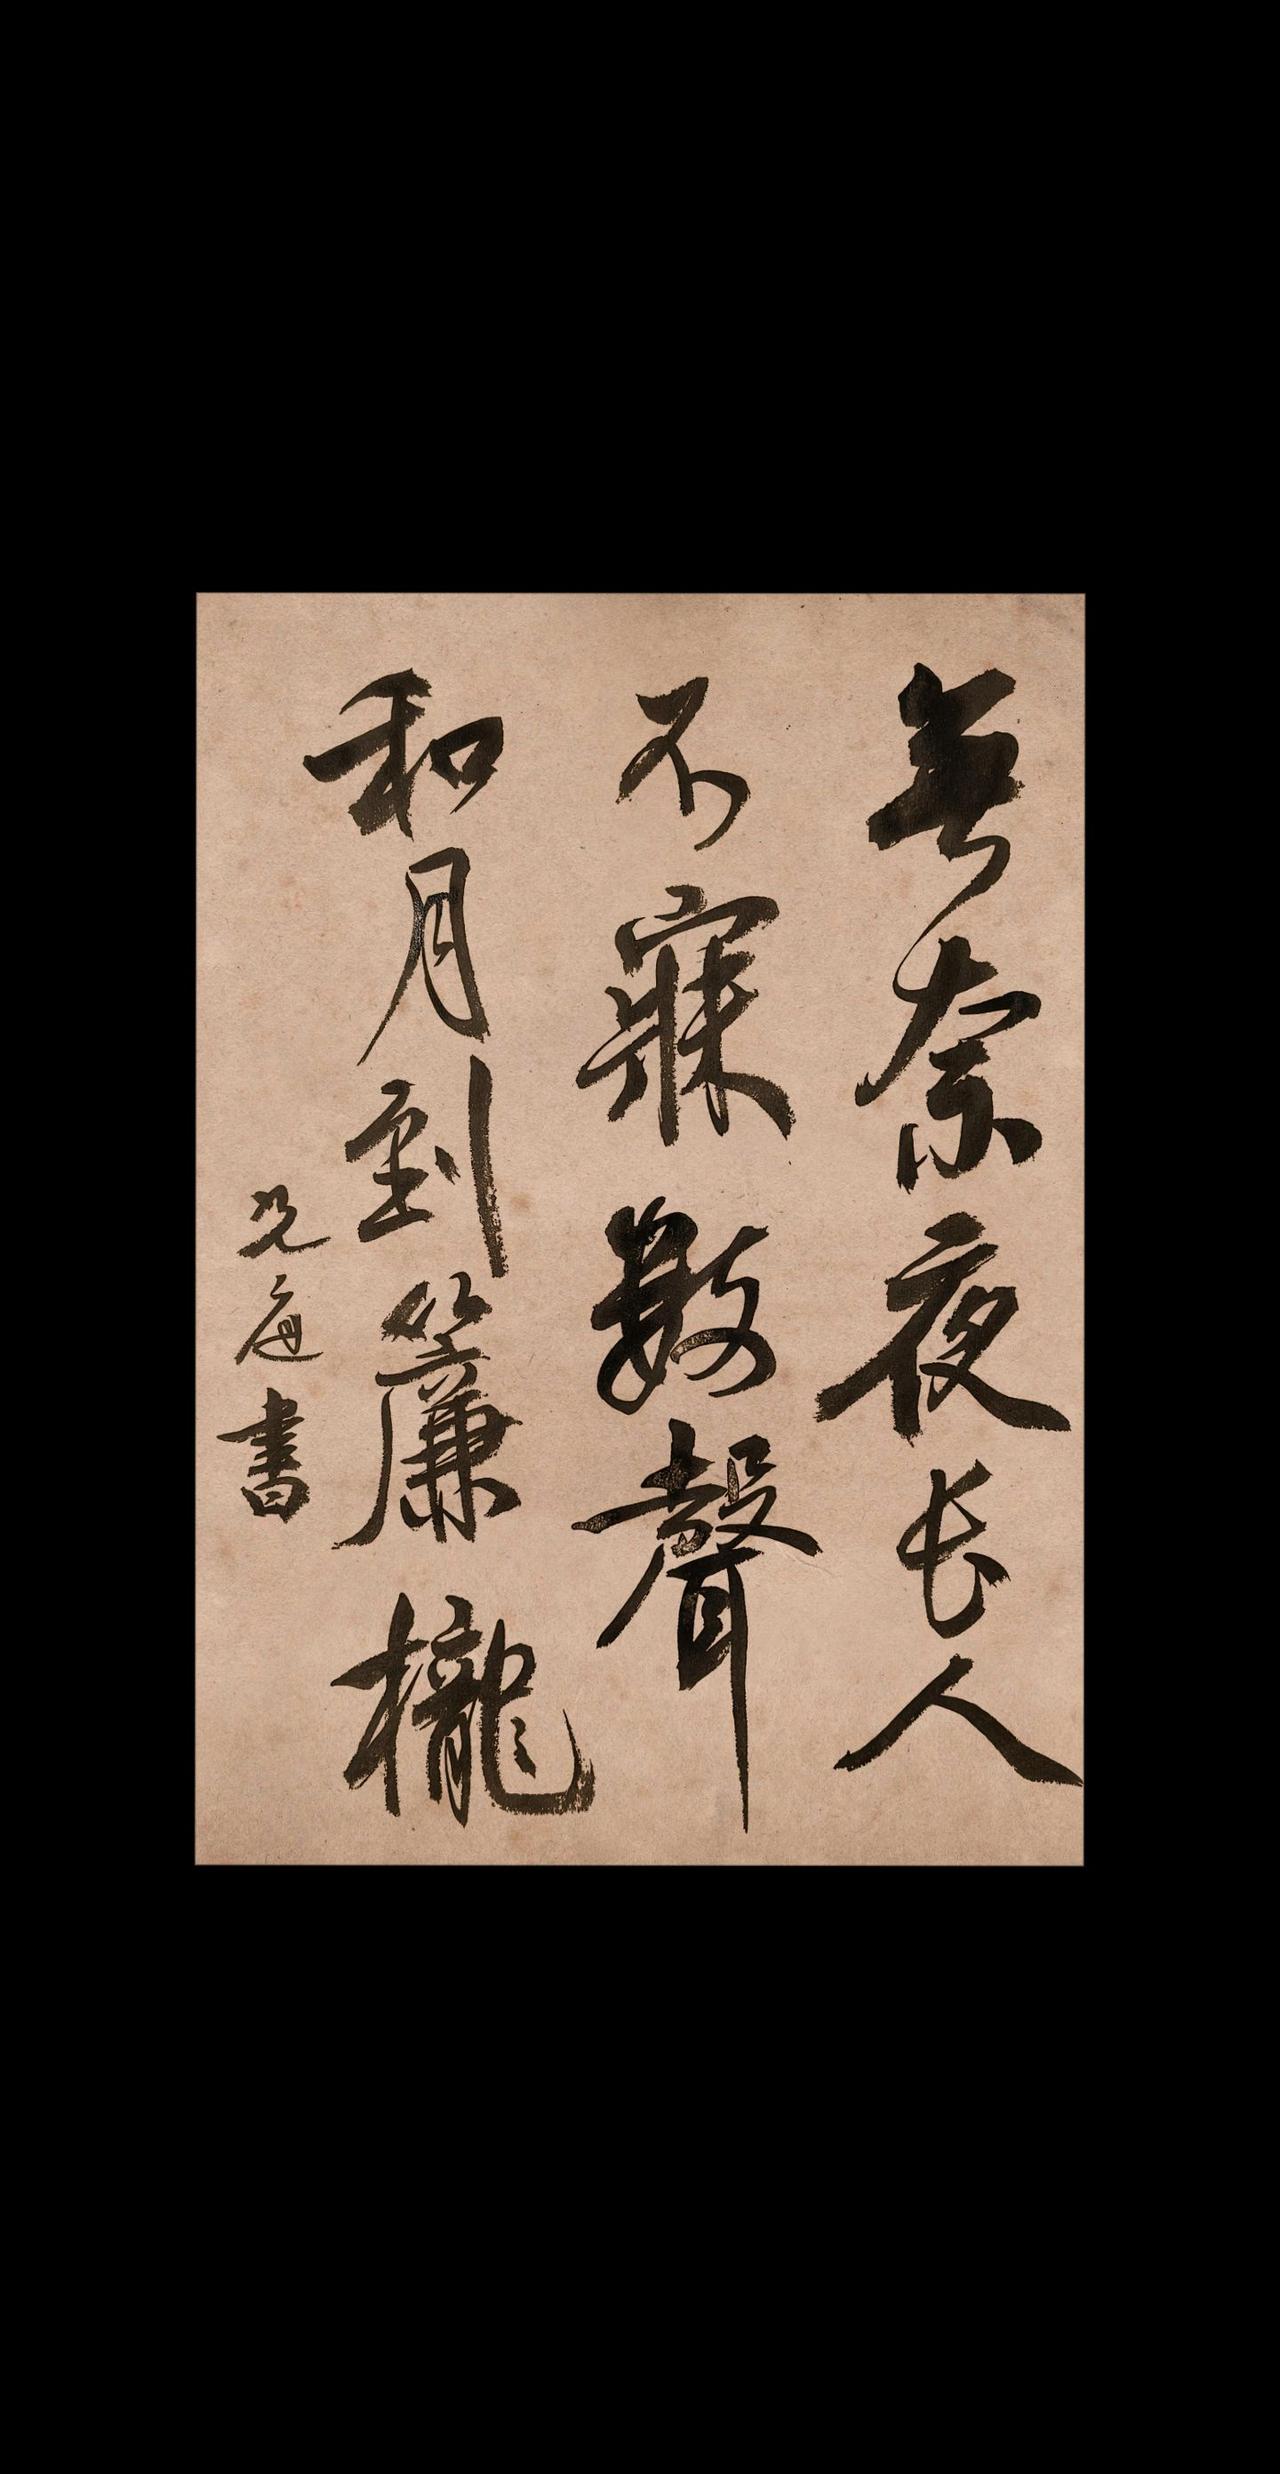 無奈夜长人
不寐數聲
和月到簾櫳
書